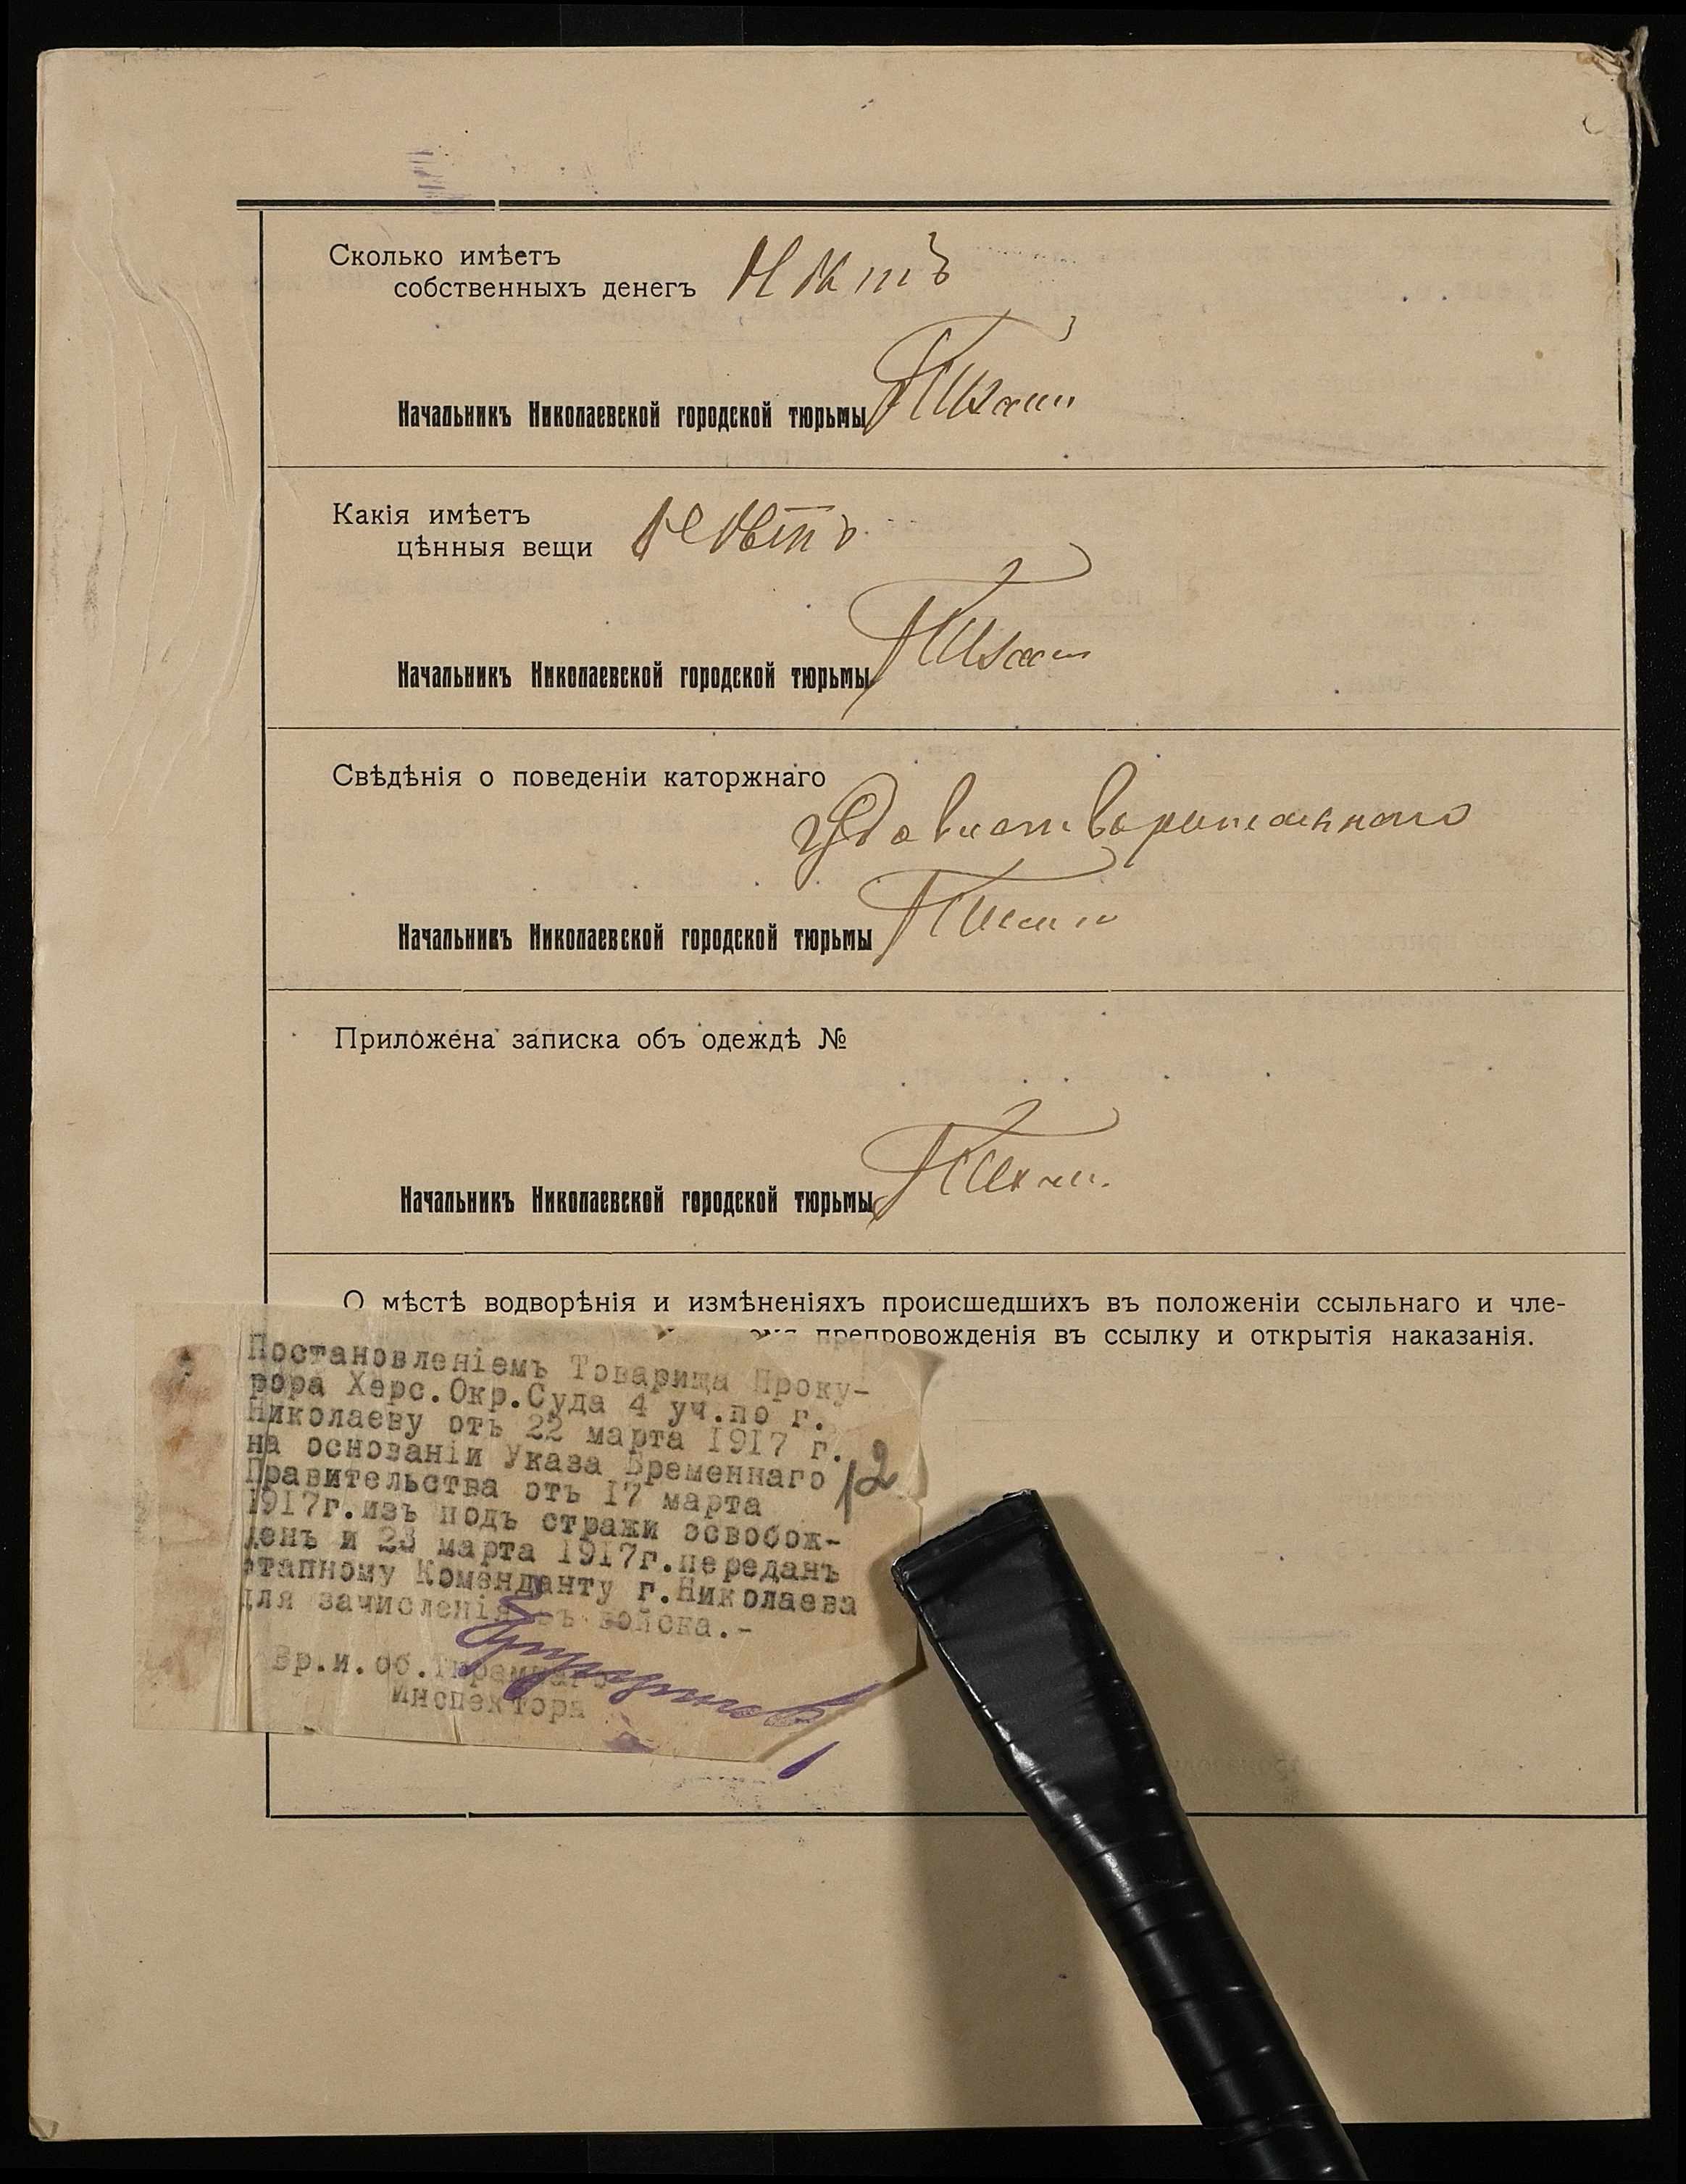 Сколько имѣетъ
собственныхъ денегъ Нѣтъ
Начальникъ Николаевской городской тюрьмы
Какія имѣетъ
цѣнныя вещи Нѣтъ
Начальникъ Николаевской городской тюрьмы
Свѣдѣнія о поведеніи каторжнаго
Удовлетворительнаго
Начальникъ Николаевской городской тюрьмы
Приложена записка объ одеждѣ №
Начальникъ Николаевской городской тюрьмы
О мѣстѣ водворѣнія и измѣненіяхъ происшедшихъ въ положеніи ссыльнаго и чле-
препровожденія въ ссылку и открытія наказанія.
Постановленіемъ Товарища Проку-
рора Херс.Окр.Суда 4 уч.по г.
Николаеву отъ 22 марта 1917 г.
на основаніи Указа Временнаго
Правительства отъ 17 марта
1917г.изъ подъ стражи освобож-
денъ и 23 марта 1917г.переданъ
этапному Коменданту г.Николаева
для зачисленія въ войска.-
12
Вр.и.об.Тюремнаго
Инспектора